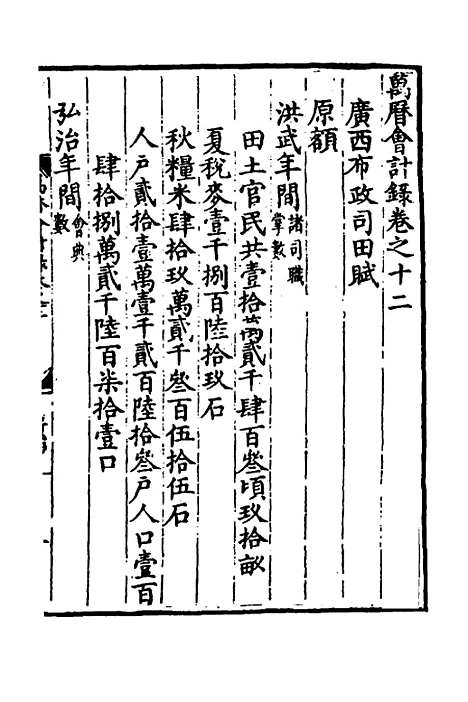 萬曆會計錄卷之十二
廣西布政司田賦
原額
洪武年間諸司職掌數
田土官民共壹拾萬貳千肆百叄頃玖拾畝
夏稅麥壹千捌百陸拾玖石
秋糧米肆拾玖萬貳千叄百伍拾伍石
人戶貳拾壹萬壹千貳百陸拾叄戶人口壹百
肆拾捌萬貳千陸百柒拾壹口
弘治年間會典數